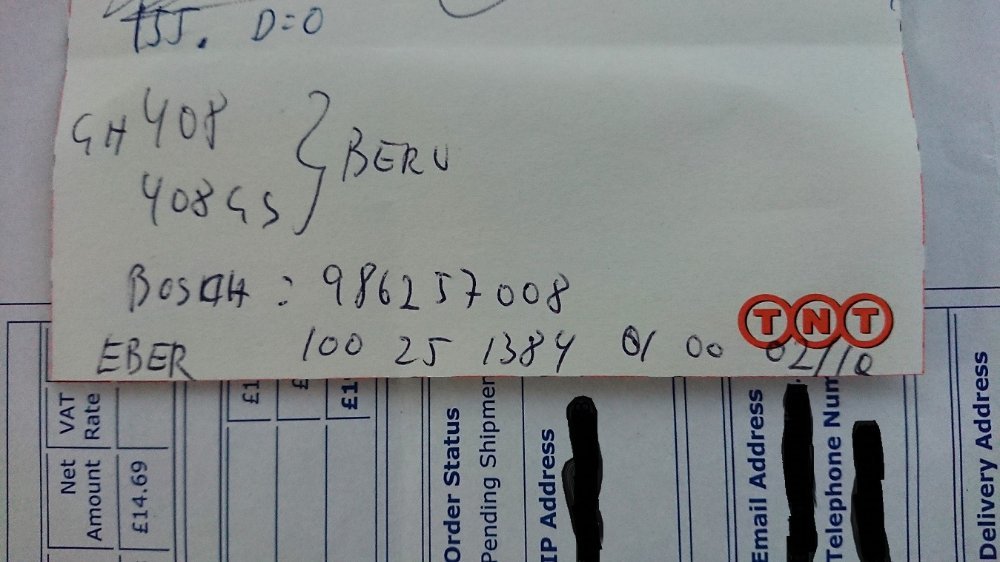 TSJ. D=0
GH 408
408 GS
BERU
BOSCH : 986257008
TNT
EBER 100 25 1384 01 00 02/10
VAT Rate
Net Amount
£14.69
£1
£
£1
Order Status
Pending Shipmen
IP Address
Email Address
Telephone Num
Delivery Address